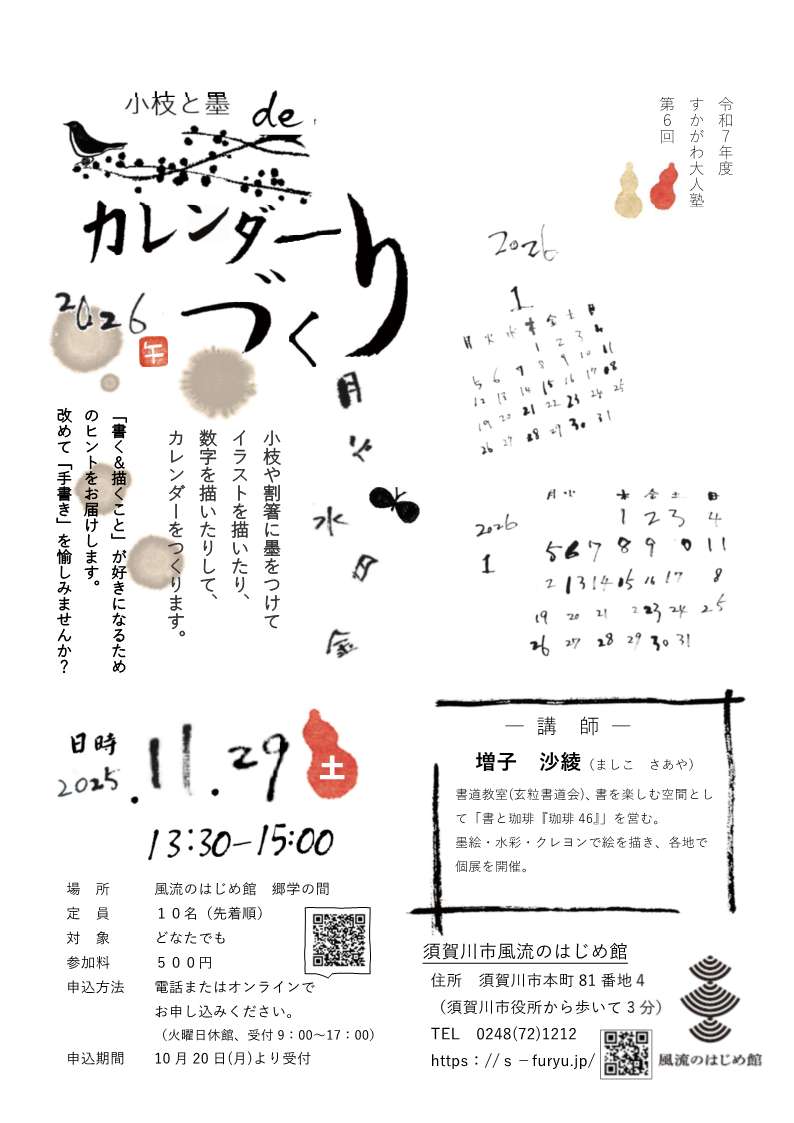 令和７年度
すかがわ大人塾
第６回
小枝と墨 de
カレンダー
づくり
2026
午
月
火
水
木
金
小枝や割箸に墨をつけて
イラストを描いたり、
数字を描いたりして、
カレンダーをつくります。
「書く＆描くこと」が好きになるため
のヒントをお届けします。
改めて「手書き」を愉しみませんか？
2026
1
月 火 水 木 金 土 日
1 2 3 4
5 6 7 8 9 10 11
12 13 14 15 16 17 18
19 20 21 22 23 24 25
26 27 28 29 30 31
2026
1
月 火 木 金 土 日
1 2 3 4
5 6 7 8 9 10 11
12 13 14 15 16 17 18
19 20 21 22 23 24 25
26 27 28 29 30 31
日時
2025.11.29 土
13:30-15:00
場　所　風流のはじめ館　郷学の間
定　員　１０名（先着順）
対　象　どなたでも
参加料　５００円
申込方法　電話またはオンラインで
お申し込みください。
（火曜日休館、受付 9：00～17：00）
申込期間　10 月 20 日(月)より受付
― 講　師 ―
増子　沙綾（ましこ　さあや）
書道教室(玄粒書道会)、書を楽しむ空間とし
て「書と珈琲『珈琲 46』」を営む。
墨絵・水彩・クレヨンで絵を描き、各地で
個展を開催。
須賀川市風流のはじめ館
住所　須賀川市本町 81 番地 4
（須賀川市役所から歩いて 3 分）
TEL　0248(72)1212
https：//ｓ－furyu.jp/
風流のはじめ館